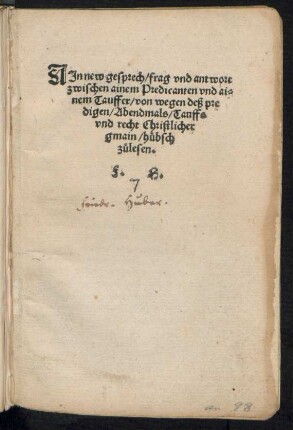 AIn new gesprech/frag vnd antwort
zwischen ainem Predicanten vnd ai-
nem Tauffer/von wegen deß pre
digen/Abendmals/Tauffs
vnd recht Christlicher
gmain/hübsch
zůlesen.
F. H.
Friedr. Huber.
98